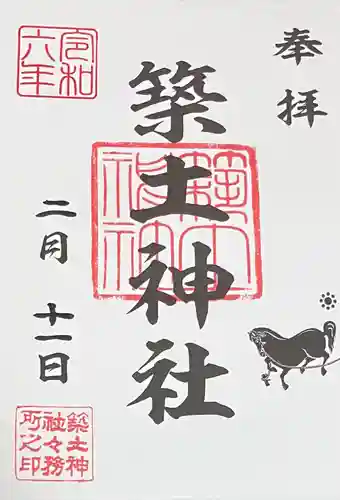 奉拝
築土神社
令和六年
二月 十一日
築土神
社々務
所之印